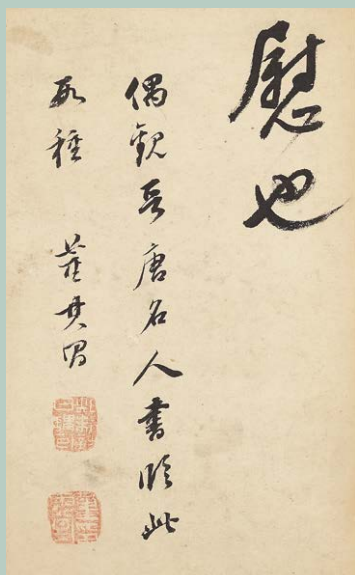 慰也
偶觀晉唐名人書臨此
數種 董其昌